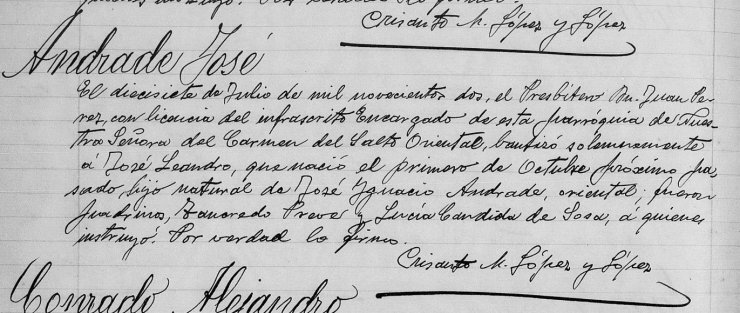 Crisanto M. López y López
Andrade José
El diecisiete de Julio de mil novecientos dos, el Presbítero Bn. Juan Per-
rez, con licencia del infrascrito Encargado de esta parróquia de Nues-
tra Señora del Carmen del Salto Oriental, bautizó solemnemente
á José Leandro, que nació el primero de Octubre próximo pa-
sado, hijo natural de José Ygnacio Andrade, oriental; fueron
padrinos, Prevé y Lucía Candida de Sosa, á quienes
instruyó. Por verdad lo firmo.
Crisanto M. López y López
Conrado Alejandro